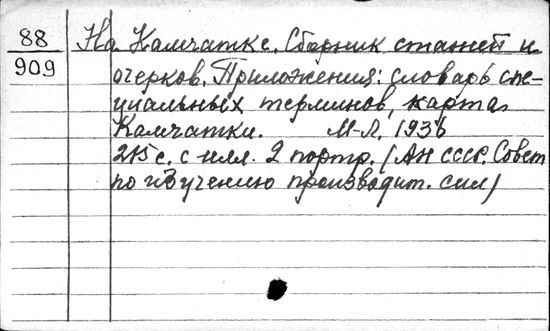 88 На Камчатке. Сборник статей и
909 очерков. Приложения: словарь спе-
циальных терминов, карта
Камчатки. М-Л. 1936
215 с. с илл. 2 портр. (АН СССР. Совет
по изучению производит. сил)